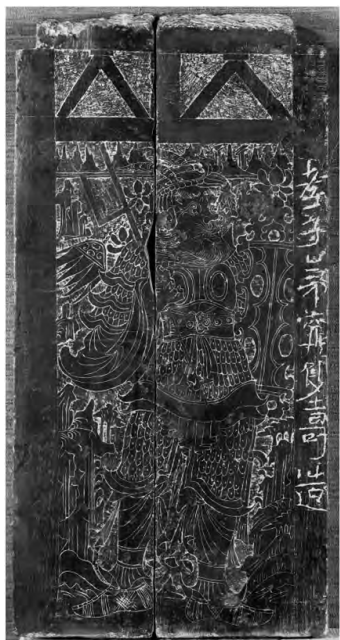 孝子弟寧雙壽造